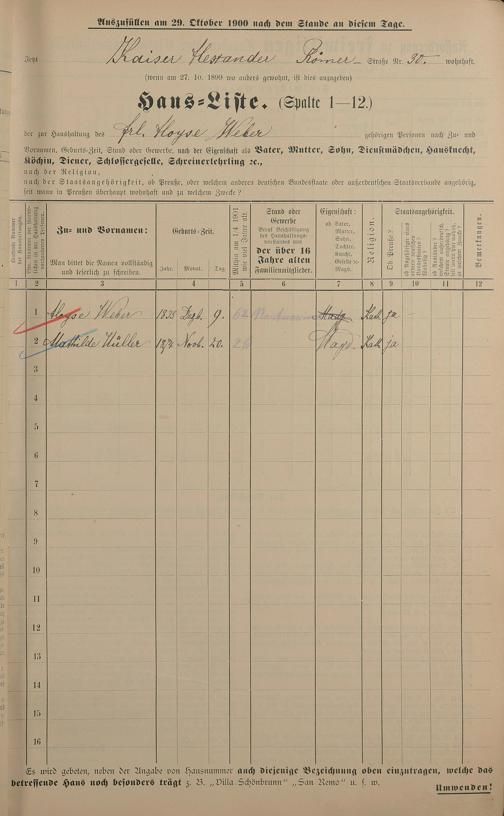 Auszufüllen am 29. Oktober 1900 nach dem Stande an diesem Tage.
Jetzt Kaiser Alexander Römer Straße Nr. 30. wohnhaft.
(wenn am 27. 10. 1899 wo anders gewohnt, ist dies anzugeben)
Haus-Liste. (Spalte 1—12.)
der zur Haushaltung des Frl. Aloyse Weber gehörigen Personen nach Zu- und
Vornamen, Geburts-Zeit, Stand oder Gewerbe, nach der Eigenschaft als Vater, Mutter, Sohn, Dienstmädchen, Hausknecht,
Köchin, Diener, Schlossergeselle, Schreinerlehrling ec.,
nach der Religion,
nach der Staatsangehörigkeit, ob Preuße, oder welchem anderen deutschen Bundesstaate oder außerdeutschen Staatsverbande angehörig,
seit wann in Preußen überhaupt wohnhaft und zu welchem Zwecke?
Zu- und Vornamen:
Man bittet die Namen vollständig
und leserlich zu schreiben.
Geburts-Zeit.
Jahr. Monat. Tag.
Mithin am 1/4 1901
wie viel Jahre alt.
Stand oder
Gewerbe
der über 16
Jahre alten
Familienmitglieder.
Eigenschaft:
ob Vater,
Mutter,
Sohn,
Tochter,
Knecht,
Geselle
Magd.
Religion.
Staatsangehörigkeit.
Ob Preuße?
Bemerkungen.
1 2 3 4 5 6 7 8 9 10 11 12
1 Aloyse Weber 1838 Dezb. 9. 62 Magd Kath ja
2 Mathilde Müller 1874 Novb. 20. 26 Magd. Kath ja
3
4
5
6
7
8
9
10
11
12
13
14
15
16
Es wird gebeten, neben der Angabe von Hausnummer auch diejenige Bezeichnung oben einzutragen, welche das
betreffende Haus noch besonders trägt z. B. „Villa Schönbrunn“ „San Remo“ u. s. w.
Umwenden!